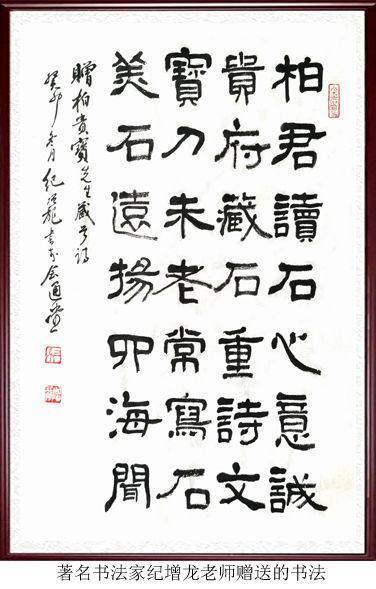 柏君讀石心意誠
貴府藏石重詩文
寶刀未老常寫石
美石遠揚四海聞
贈柏貴寶先生藏頭詩
癸卯冬月紀增龍書於会通堂
著名书法家纪增龙老师赠送的书法